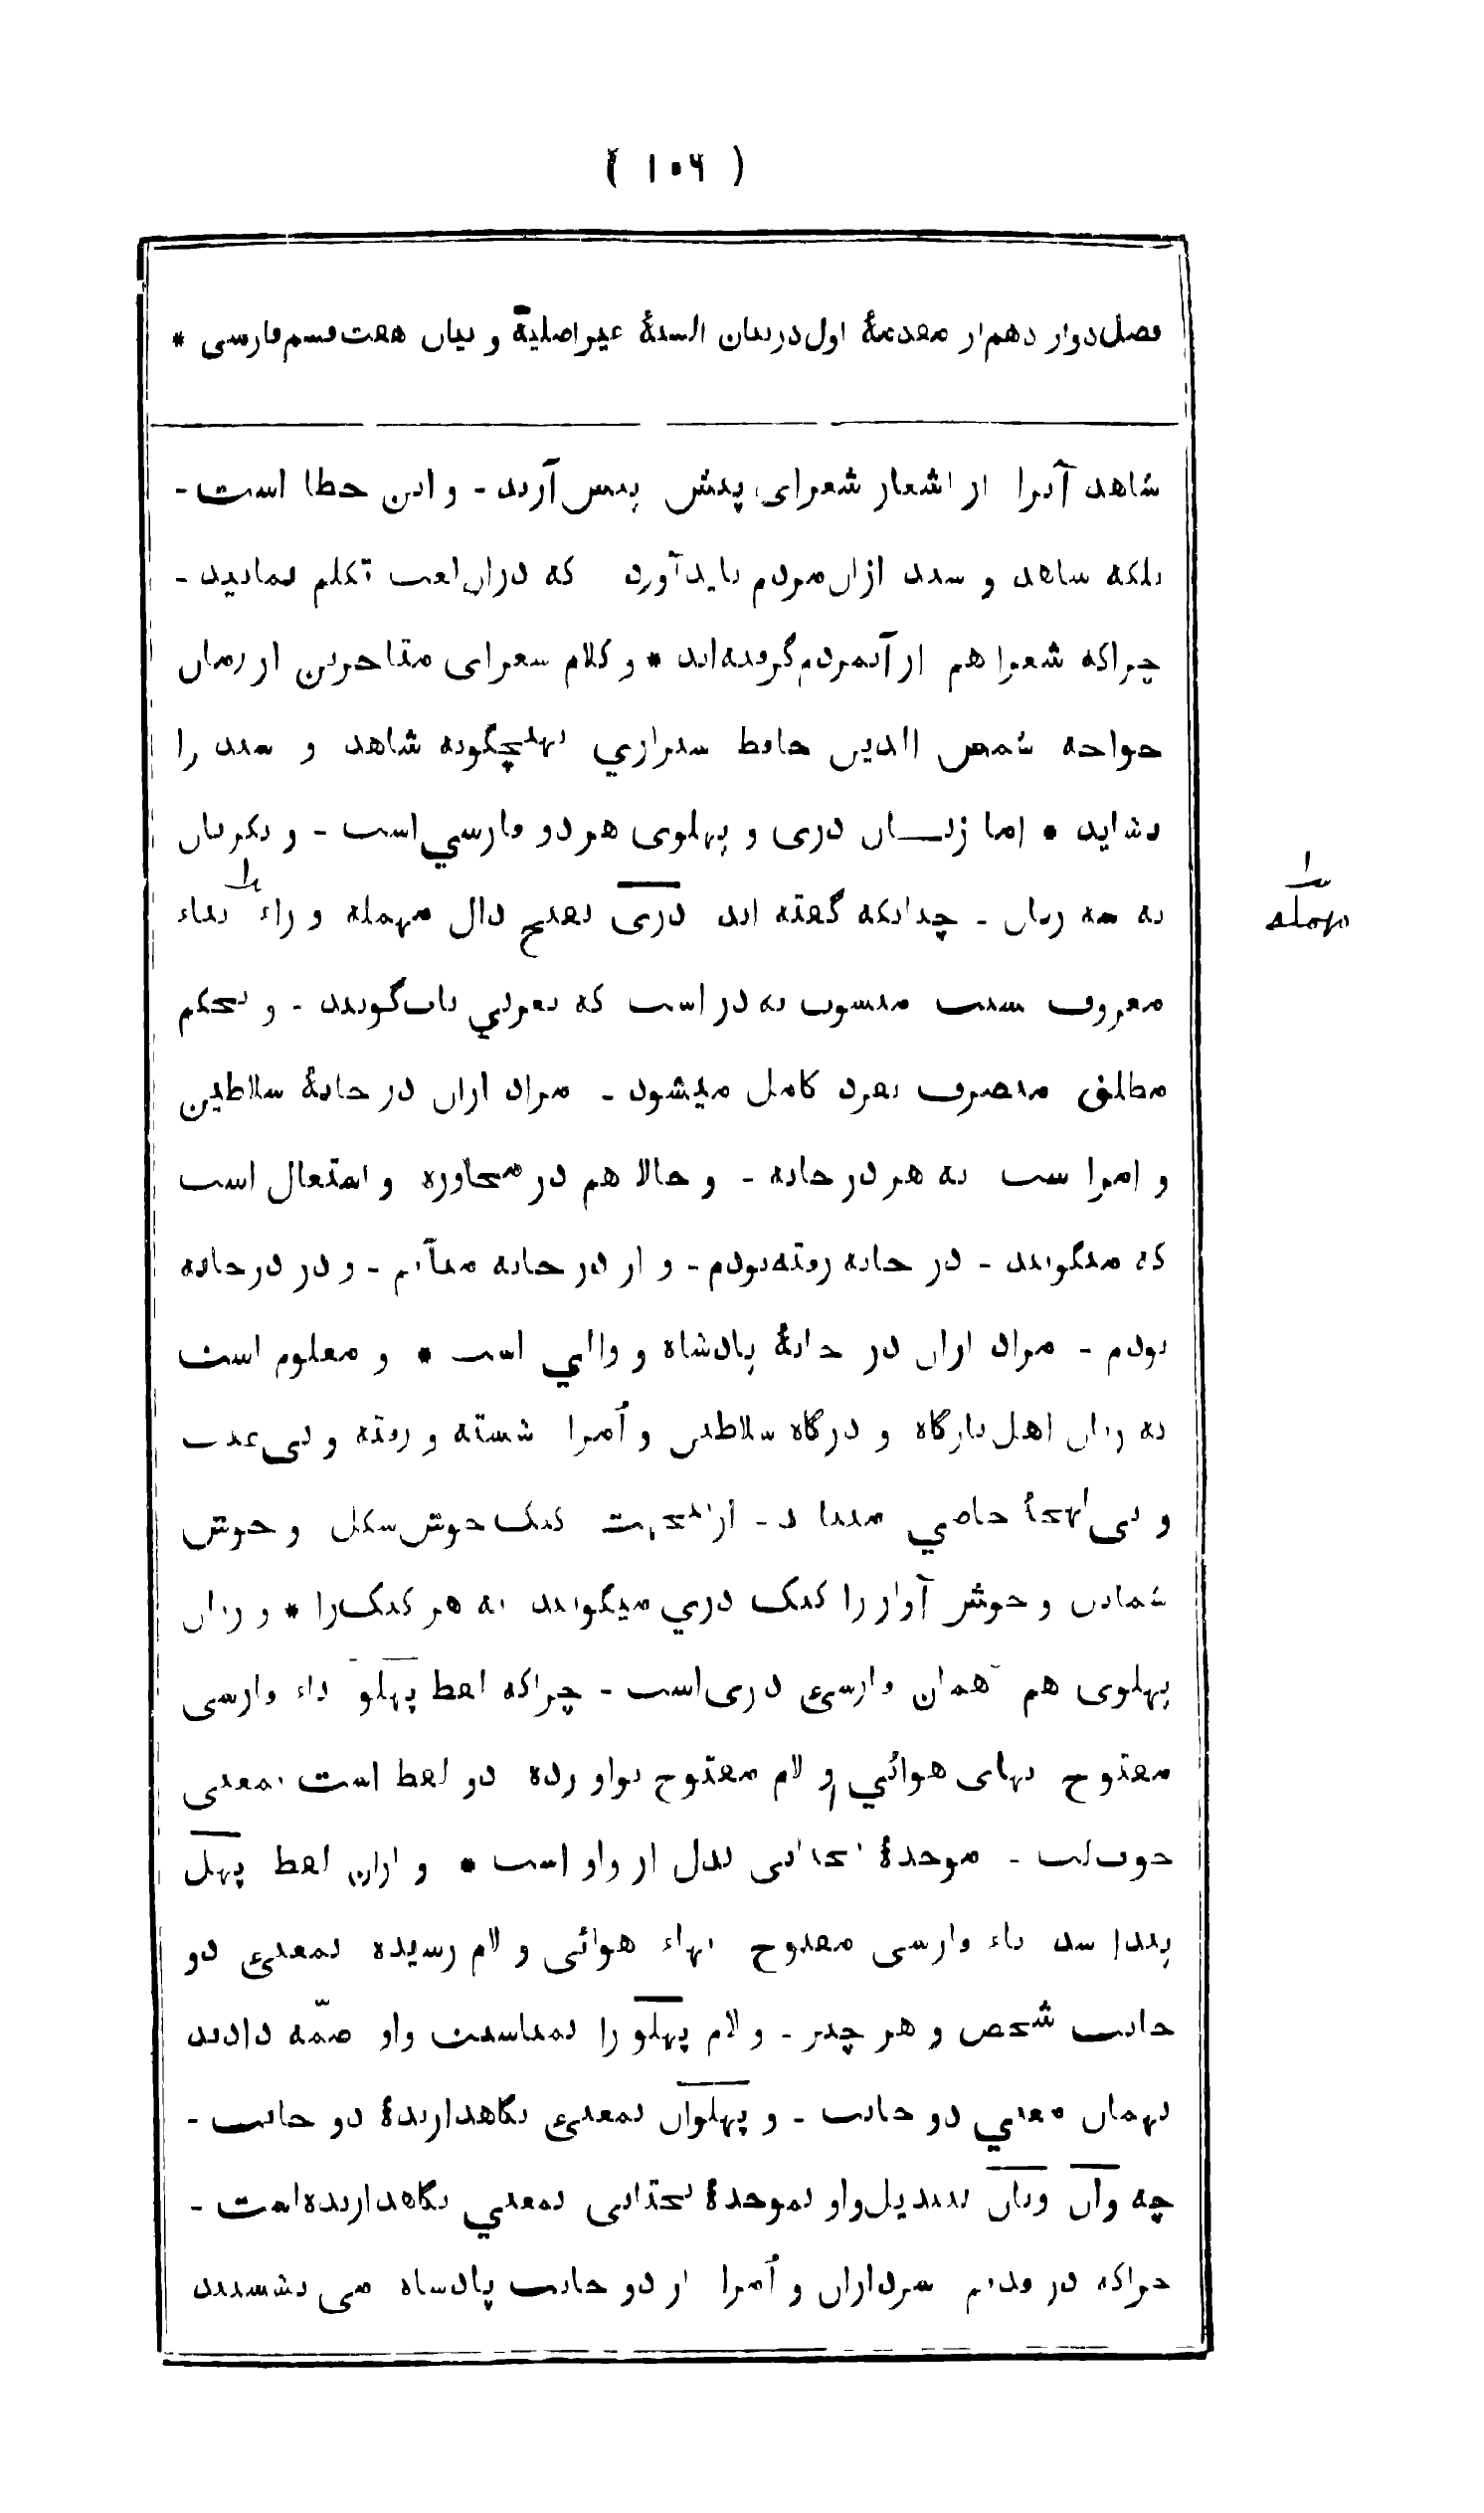 ( ۱۰۶ )
فصل دوازدهم از مقدمهٔ اول در بیان السنهٔ غیر اصلیة و بیان هفت قسم فارسی *
شاهد آنرا از اشعار شعرای پیش پیش آرند - و این خطا است -
بلکه شاهد و سند ازان مردم باید آورد که دران لغت تکلم نمایند -
چراکه شعرا هم از آنمردم گرفته‌اند * و کلام شعرای متاخرین از زمان
خواجه شمس الدین حافظ شیرازي بهیچگونه شاهد و سند را
نشاید * اما زبان دری و پهلوی هر دو فارسي است - و یکزبان
نه سه زبان - چنانکه گفته اند دری بفتح دال مهمله و راء بیاء
مهمله
معروف نسبت منسوب به در است که بعربي باب گویند - و بحکم
مطلق منصرف بفرد کامل میشود - مراد ازان در خانهٔ سلاطین
و امرا ست نه هر در خانه - و حالا هم در محاوره و استعمال است
که میگویند - در خانه رفته بودم - و از در خانه میآیم - و در در خانه
بودم - مراد ازان در خانهٔ پادشاه و والي است * و معلوم است
که زبان اهل بارگاه و درگاه سلاطین و اُمرا شسته و رفته و بی عیب
و بی لهجهٔ خاصي میباشد - ازینجهت کبک خوش شکل و خوش
شمائل و خوش آواز را کبک دري میگویند نه هر کبک را * و زبان
پهلوی هم همان فارسیٔ دری است - چراکه لفظ پهلو باء فارسی
مفتوح بهای هوائي و لام مفتوح بواو زده دو لفظ است بمعنی
موحدهٔ تحتانی بدل از واو است * و ازان لفظ پهل
پیدا شد باء فارسی مفتوح بهاء هوائی و لام رسیده بمعنیٔ دو
جانب شخص و هر چیز - و لام پهلو را بمناسبت واو ضمّه دادند
بهمان معني دو جانب - و پهلوان بمعنیٔ نگاهدارندهٔ دو جانب -
چه وان وبان بتبدیل واو بموحدهٔ تحتانی بمعني نگاهدارنده است -
چراکه در قدیم سرداران و اُمرا از دو جانب پادشاه می نشستند